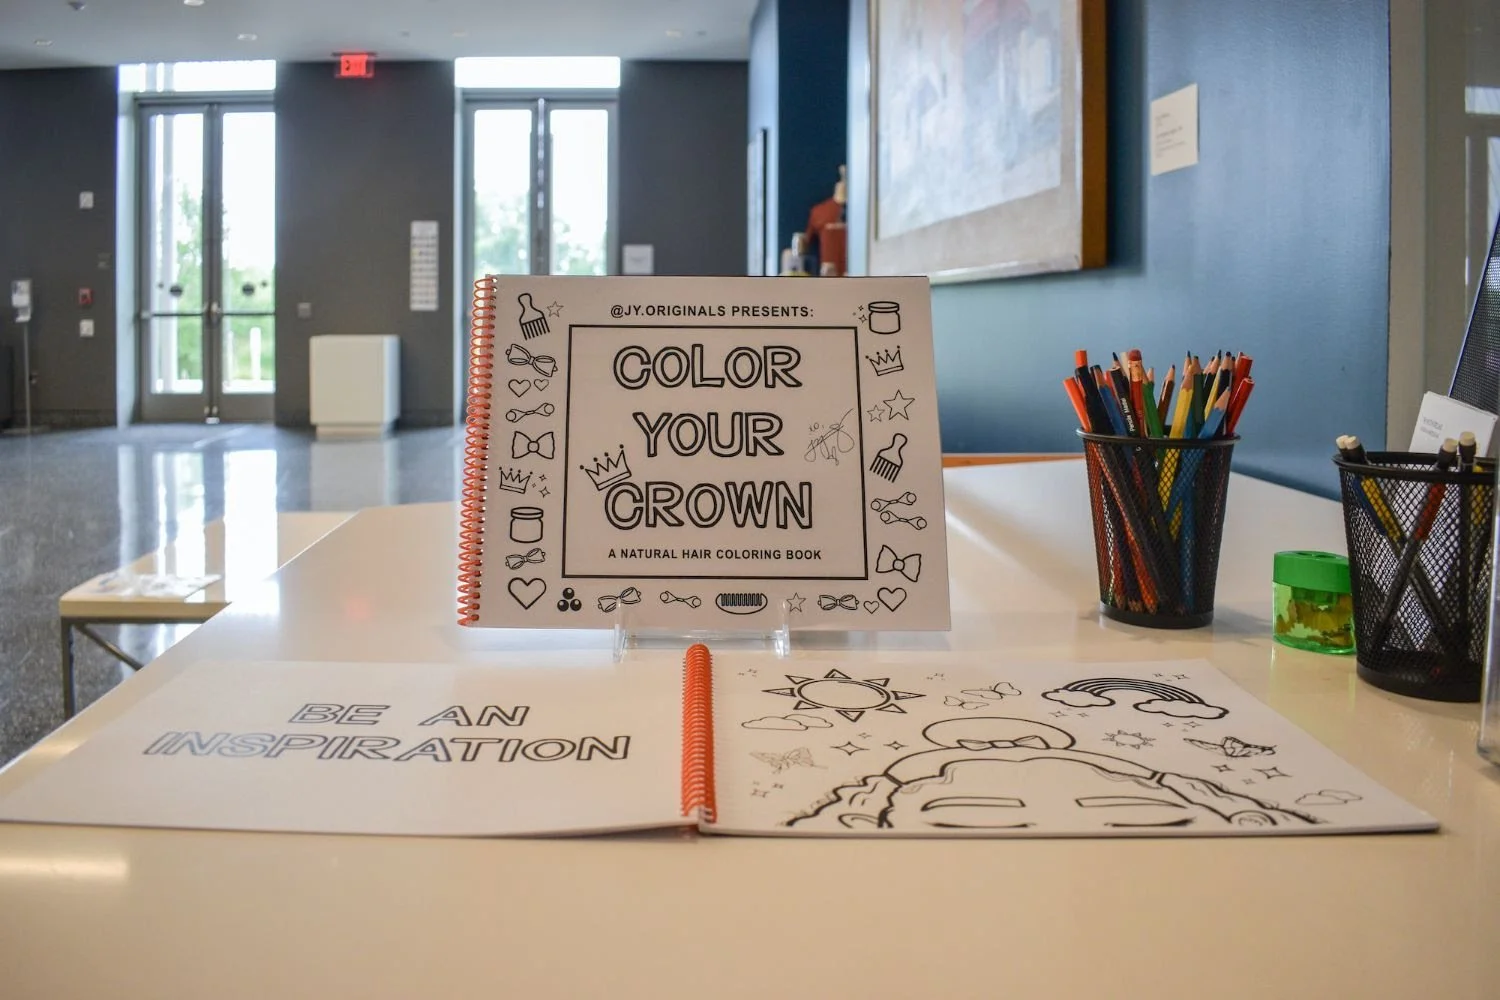 EXIT
@JY.ORIGINALS PRESENTS:
COLOR
YOUR
CROWN
A NATURAL HAIR COLORING BOOK
BE AN
INSPIRATION